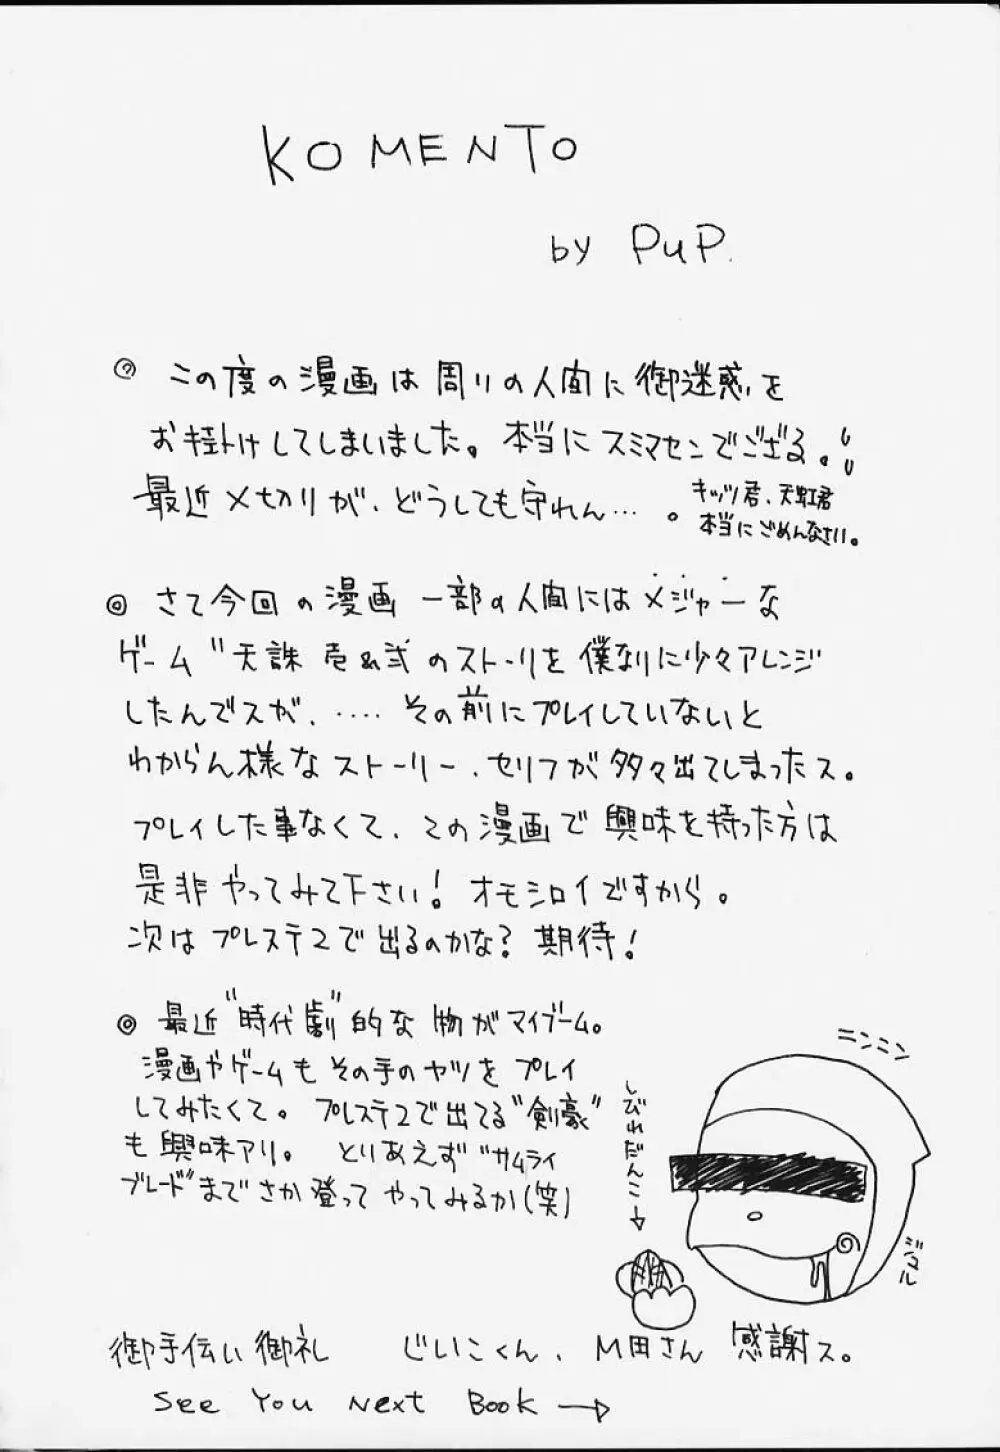 KOMENTO
by PuP.
◎ この度の漫画は周りの人間に御迷惑を
お掛けしてしまいました。本当にスミマセンでござる。!!
最近〆切りが、どうしても守れん…。
キッツ君、天虹君
本当にごめんなさい。
◎ さて今回の漫画 一部の人間にはメジャーな
ゲーム"天誅 壱&弐のストーリを僕なりに少々アレンジ
したんでスが、‥‥ その前にプレイしていないと
わからん様なストーリー、セリフが多々出てしまったス。
プレイした事なくて、この漫画で興味を持った方は
是非やってみて下さい! オモシロイですから。
次はプレステ2で出るのかな? 期待!
◎ 最近"時代劇"的な物がマイブーム。
漫画やゲームもその手のヤツをプレイ
してみたくて。プレステ2で出てる"剣豪"
も興味アリ。とりあえず"サムライ
ブレード"までさか登ってやってみるか(笑)
ニンニン
しびれだんご→
ジュル
御手伝い御礼 じいこくん、M田さん 感謝ス。
See You Next Book →